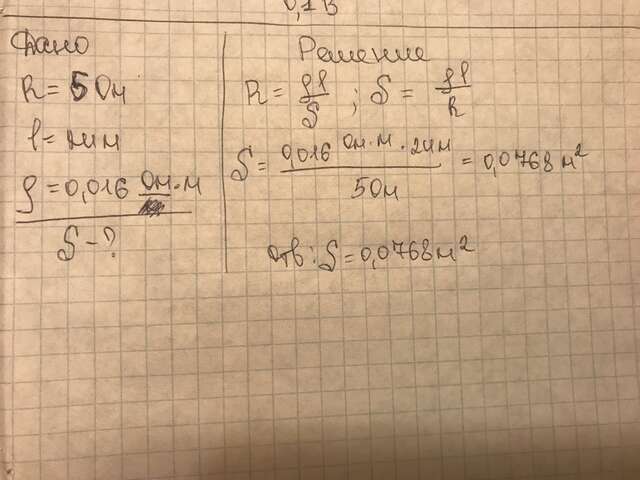 0,1 В
Дано
R = 5 Ом
l = 24 м
ρ = 0,016 Ом·м
S - ?
Решение
R = ρl/S ; S = ρl/R
S = 0,016 Ом·м · 24 м / 5 Ом = 0,0768 м²
отв: S = 0,0768 м²